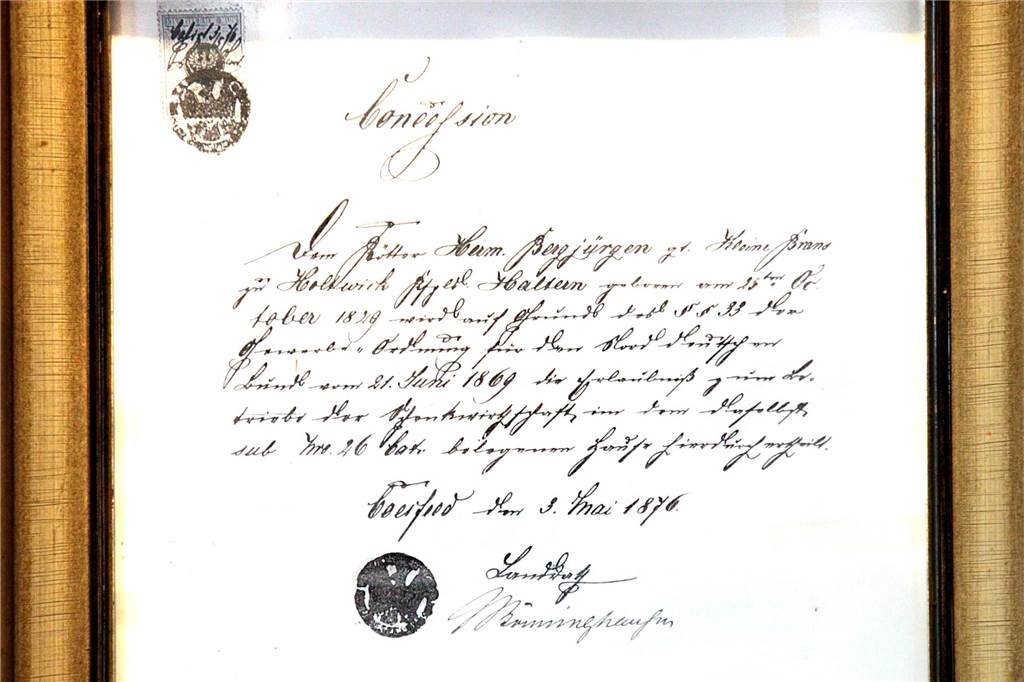 Concession
Dem Kötter Herm. Bergjürgen gt. Kleine Brans
zu Holtwick Kspls. Haltern geboren am 25ten Oc-
tober 1829 wird auf Grund des §§ 33 der
Gewerbe-Ordnung für den Norddeutschen
Bund vom 21. Juni 1869 die Erlaubniß zum Be-
triebe der Schenkwirthschaft, in dem daselbst
sub Nro. 26 Cat. belegenen Hause hierdurch ertheilt.
Coesfeld den 3. Mai 1876.
Landrath